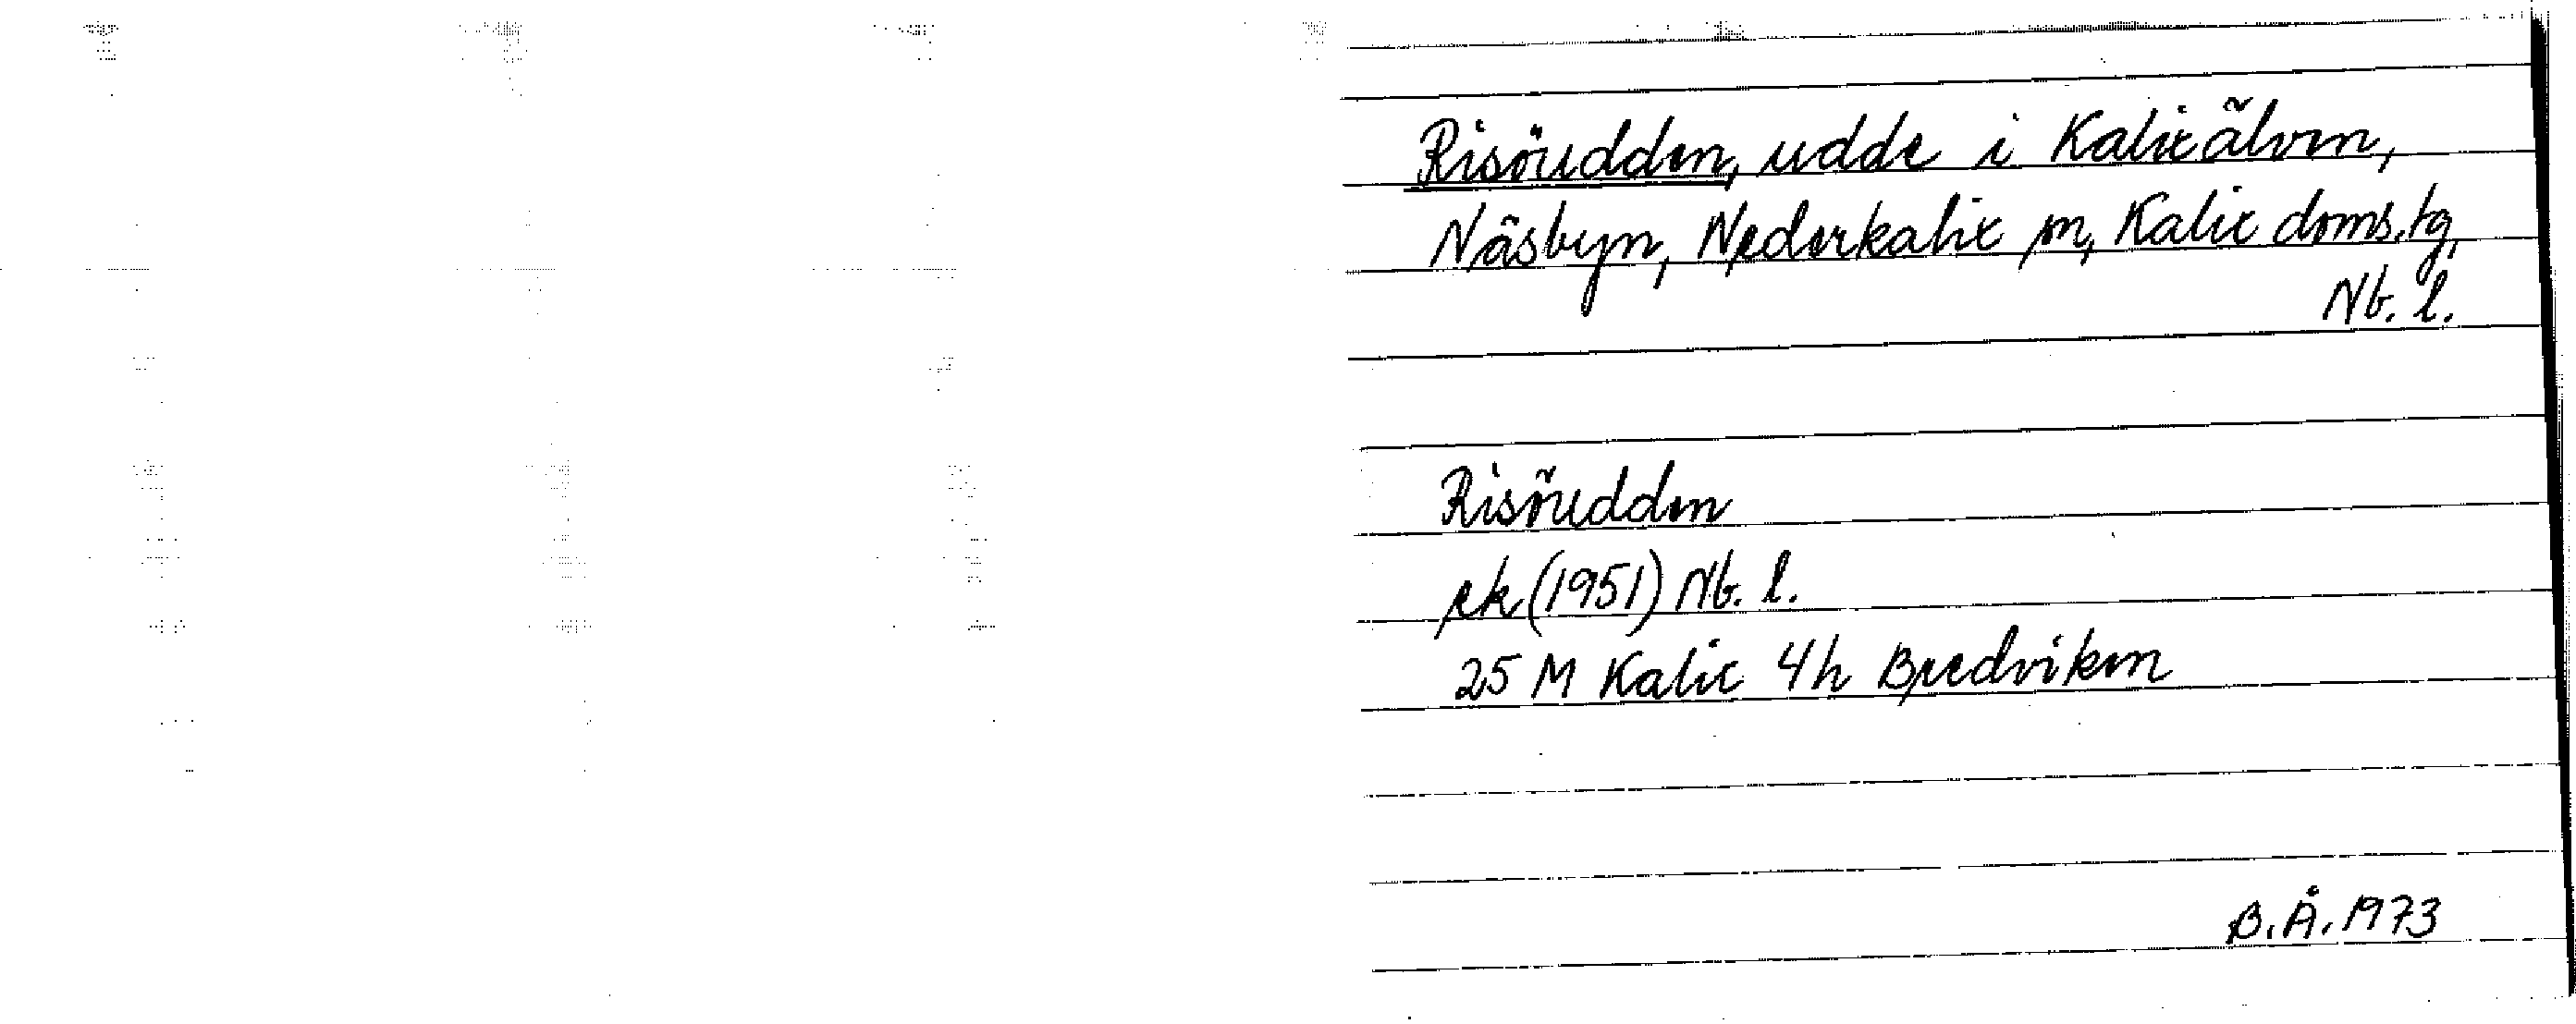 Risöudden, udde i Kalixälven,
Näsbyn, Nederkalix sn, Kalix doms.tg,
Nb. l.
Risöudden
ek (1951) Nb. l.
25 M Kalix 4h Bredviken
B.Å. 1973